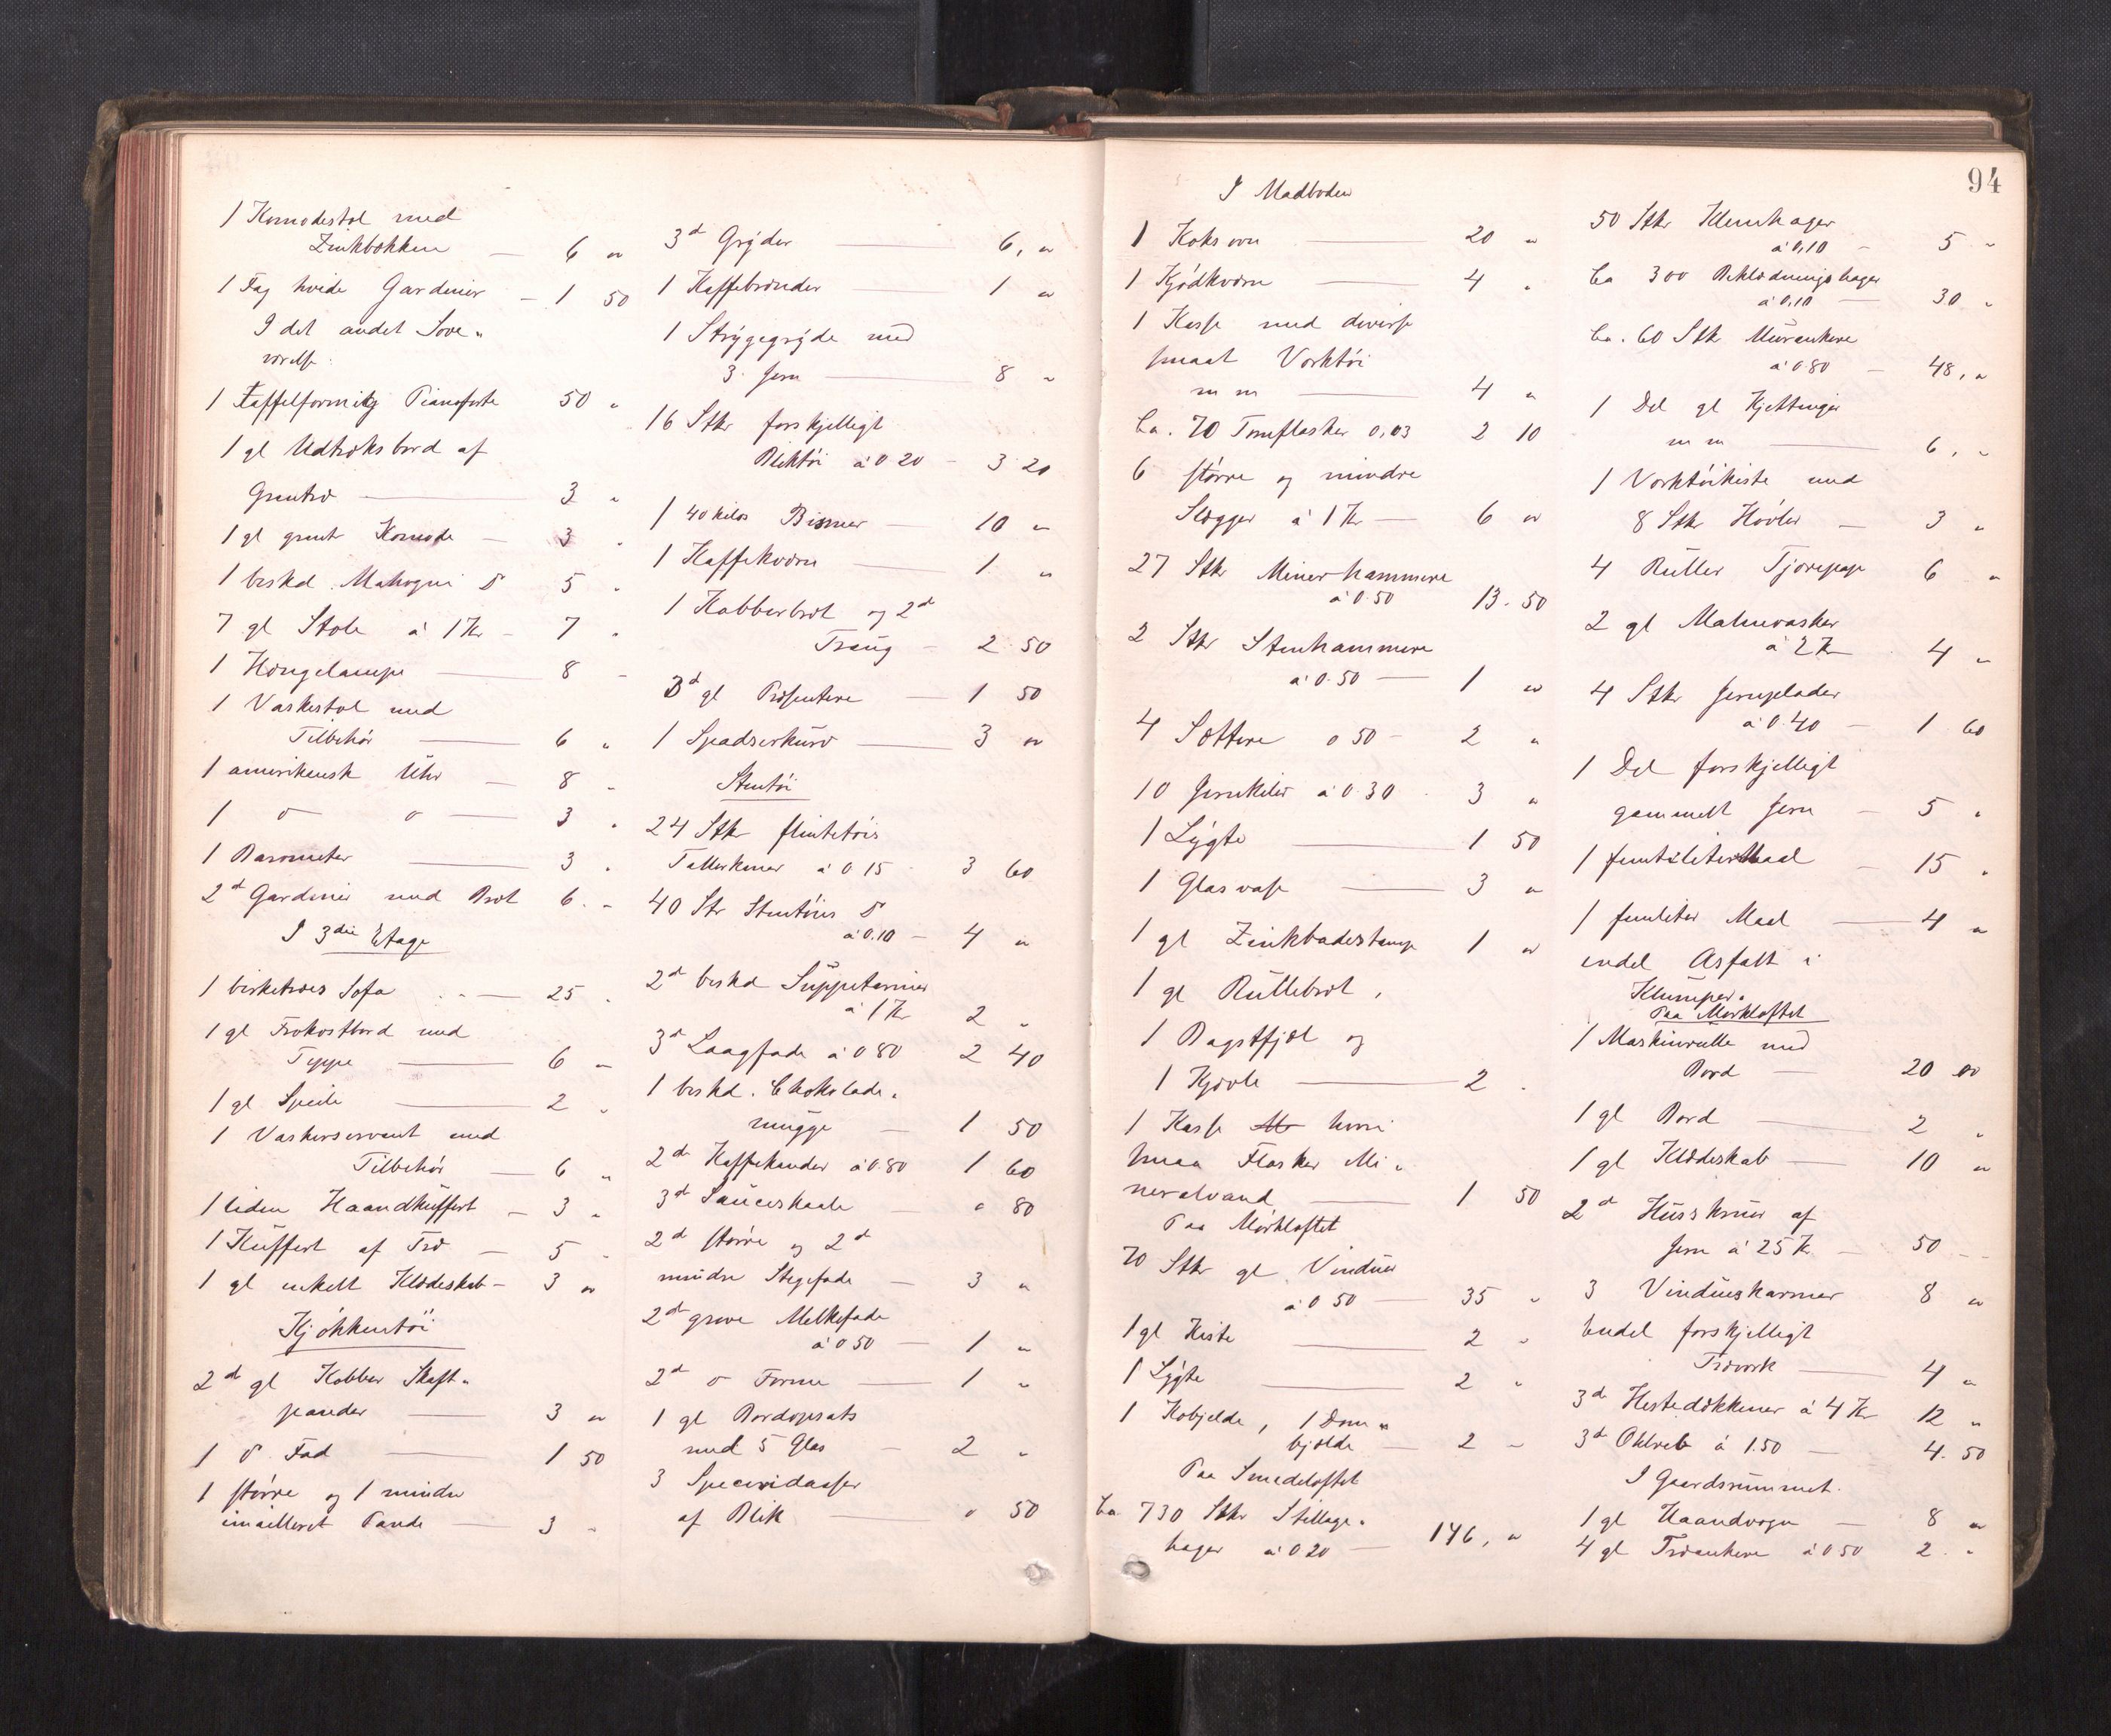 1 Komodestol med
Zinkbækken — 6 "
1 Fag hvide Gardiner — 1 50
I det andet Sove„
værelse.
1 Taffelformitg Pianoforte 50 "
1 gl Udtræksbord af
Grantræ — 3 "
1 gl grmt Komode — 3 "
1 beskd. Mahogni d 5 "
7 gl Stole à 1 Kr — 7 "
1 Hængelampe — 8 "
1 Vaskestol med
Tilbehør — 6 "
1 amerikansk Uhr — 8 "
1 d d — 3 "
1 Barometer — 3 "
2d Gardiner med Bræt 6. "
I 3die Etage
1 birketræes Sofa — 25 "
1 gl Frokostbord med
Teppe — 6 "
1 gl Speile — 2 "
1 Vaskeservant med
Tilbehør — 6 "
1 liden Haandkuffert — 3 "
1 Kuffert af Træ — 5 "
1 gl enkelt Klædeskab — 3 "
Kjøkkentøi
2d gl Kobber Skaft„
pander — 3 "
1 d Fad — 1 50
1 større og 1 mindre
emailleret Pande — 3 "
3d Gryder — 6, "
1 Kaffebrænder — 1 "
1 Strygegryde med
3 Jern — 8 "
16 Stkr forskjelligt
Bliktøi à 0 20 — 3 20
1 40 kilos Bismer — 10 "
1 Kaffekværn — 1 "
1 Kobberbræt og 2d
Traug — 2 50
3d gl Præsentere — 1 50
1 Spadserkurv — 3 "
Stentøi
24 Stkr flintetøis
Tallerkener à 0 15 3 60
40 Str Stentøies d
à 0.10 — 4 "
2d beskd Suppeteriner
à 1 Kr 2 "
3d Laagfade à 0 80 2 40
1 beskd. Chokolade„
mugge — 1 50
2d Kaffekander à 0.80 1 60
3d Sauceskaale — " 80
2d større og 2d
mindre Stegefade — 3 "
2d grove Melkefade
à 0 50 — 1 "
2d d Forme — 1 "
1 gl Bordopsats
med 5 Glas — 2 "
3 Speceridaaser
af Blik — " 50
94
I Madboden
1 Koksovn — 20 "
1 Kjødkværn — 4 "
1 Kasse med diverse
smaat Værktøi
m m — 4 "
Ca. 70 Tomflasker 0,03 2 10
6 større og mindre
Slægger à 1 Kr — 6 "
27 Stkr Minerhammere
à 0.50 13. 50
2 Stkr Stenhammere
à 0.50 — 1 "
4 Sættere 0 50 — 2 "
10 Jernkiler à 0.30 3 "
1 Lygte — 1 50
1 Glasvase — 3 "
1 gl Zinkbadestamp 1 "
1 gl Rullebræt,
1 Bagstfjæl og
1 Kjævle — 2 "
1 Kasse hvori
smaa Flasker Mi„
neralvand — 1 50
Paa Mørkloftet
70 Stkr gl Vinduer
à 0 50 — 35 "
1 gl Kiste — 2 "
1 Lygte — 2 "
1 Kobjelde, 1 Dom„
bjælde — 2 "
Paa Smedeloftet
Ca. 730 Stkr Stillage„
hager à 0 20 — 146, "
50 Stkr Klemhager
à 0,10 — 5 "
Ca 300 Beklædningshager
à 0,10 — 30 "
Ca. 60 Stk Murankere
à 0.80 — 48, "
1 Del gl Kjettinger
m m — 6, "
1 Værktøikiste med
8 Stkr Høvler — 3 "
4 Ruller Tjærepap 6 "
2 gl Malmvasker
à 2 Kr 4 "
4 Stkr Jernplader
à 0.40 — 1 60
1 Del forskjelligt
gammelt Jern — 5 "
1 femtiliterMaal — 15 "
1 femliter Maal — 4 "
endel Asfalt i
Klumper.
Paa Mørkloftet
1 Maskinrulle med
Bord — 20 00
1 gl Bord — 2 "
1 gl Klædeskab — 10 "
2d Husskruer af
Jern à 25 Kr — 50 "
3 Vindueskarmer 8 "
Endel forskjelligt
Træværk — 4 "
3d Hestedækkener à 4 Kr 12 "
3d à 1.50 — 4. 50
I Gaardsrummet.
1 gl Haandvogn — 8 "
4 gl Træankere à 0 50 2 "